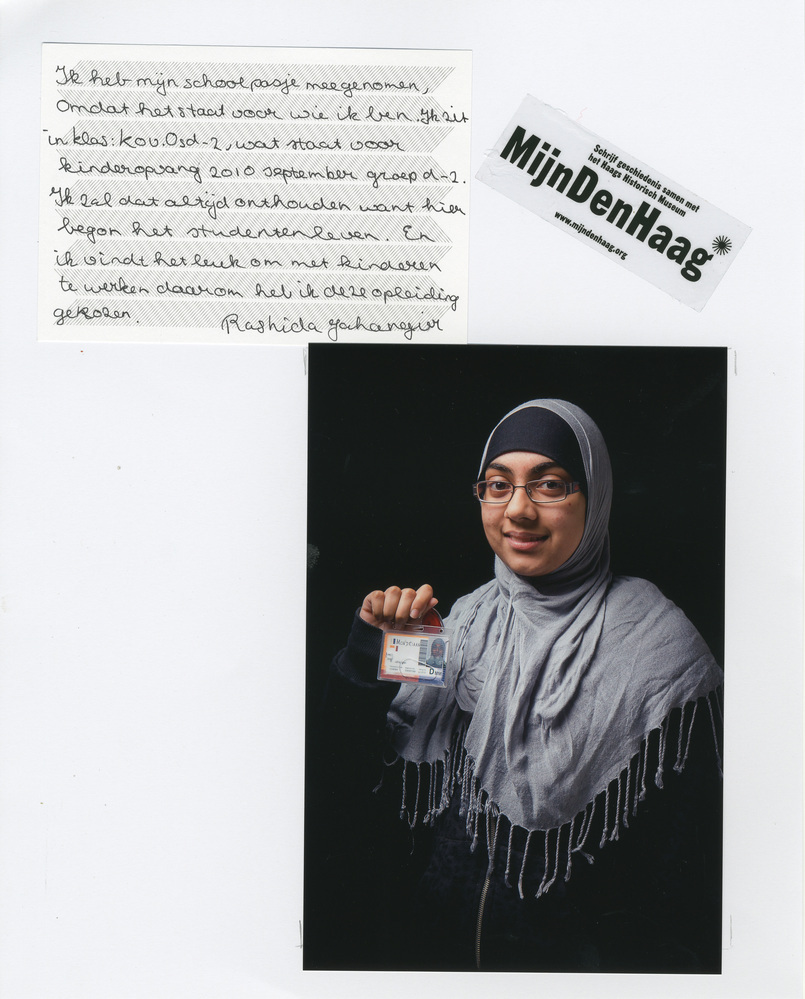 Ik heb mijn schoolpasje meegenomen,
Omdat het staat voor wie ik ben. Ik zit
in klas: Kov.Osd-2, wat staat voor
kinderopvang 2010 september groep d-2.
Ik zal dat altijd onthouden want hier
begon het studentenleven. En
ik vindt het leuk om met kinderen
te werken daarom heb ik deze opleiding
gekozen.
Rashida Jahangier
Schrijf geschiedenis samen met
het Haags Historisch Museum
MijnDenHaag
www.mijndenhaag.org